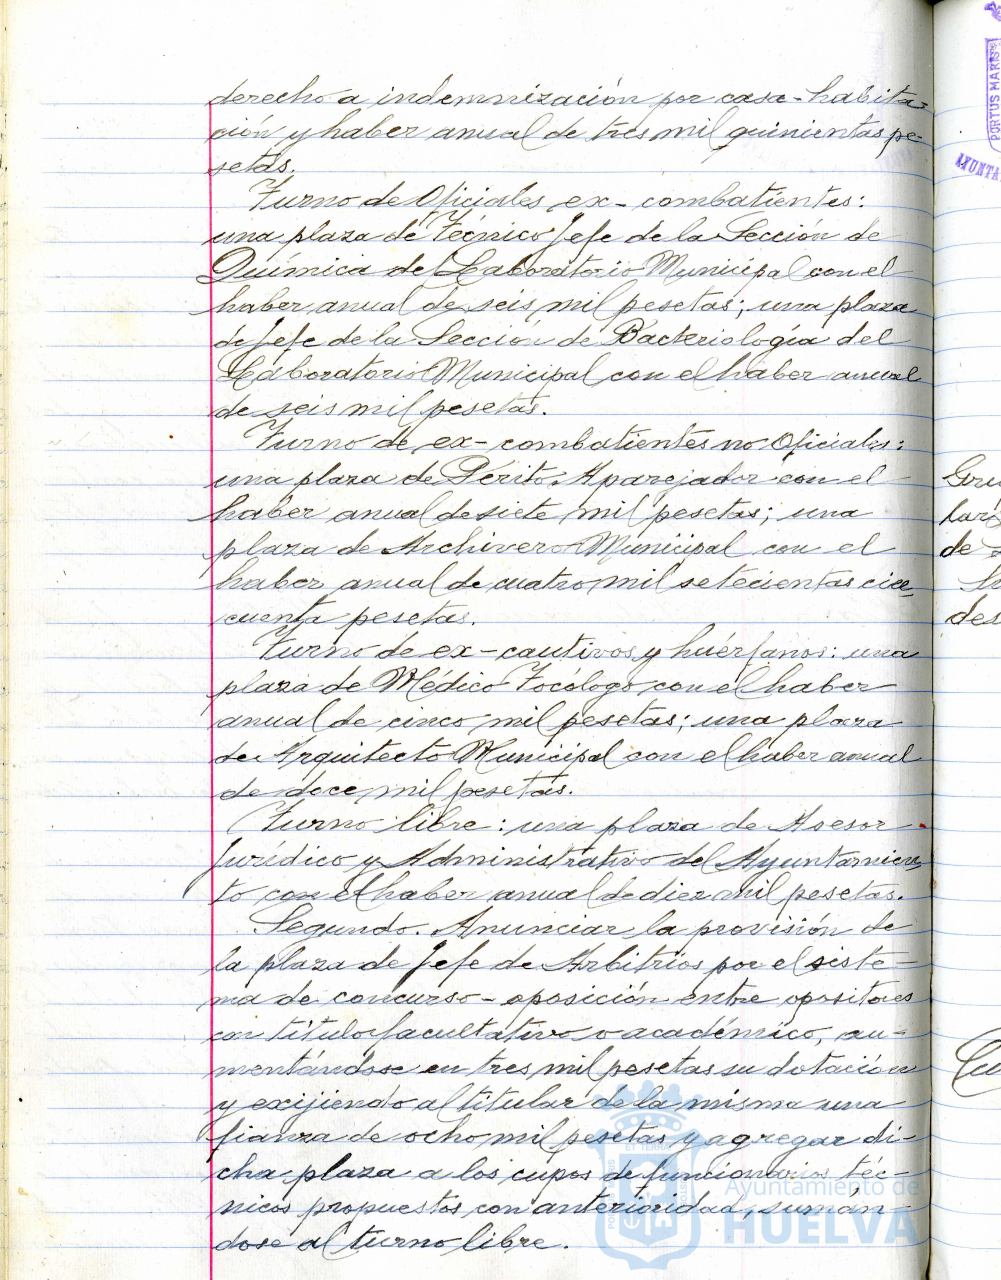 derecho a indemnización por casa-habita-
ción y haber anual de tres mil quinientas pe-
setas.
Turno de Oficiales ex-combatientes:
una plaza de Técnico Jefe de la Sección de
Química del Laboratorio Municipal con el
haber anual de seis mil pesetas; una plaza
de Jefe de la Sección de Bacteriología del
Laboratorio Municipal con el haber anual
de seis mil pesetas.
Turno de ex-combatientes no Oficiales:
una plaza de Périto Aparejador con el
haber anual de siete mil pesetas; una
plaza de Archivero Municipal con el
haber anual de cuatro mil setecientas cin-
cuenta pesetas.
Turno de ex-cautivos y huérfanos: una
plaza de Médico Tocólogo con el haber
anual de cinco mil pesetas; una plaza
de Arquitecto Municipal con el haber anual
de doce mil pesetas.
Turno libre: una plaza de Asesor
Jurídico y Administrativo del Ayuntamien-
to con el haber anual de diez mil pesetas.
Segundo. Anunciar la provisión de
la plaza de Jefe de Arbitrios por el siste-
ma de concurso-oposición entre opositores
con título facultativo o académico, au-
mentándose en tres mil pesetas su dotación
y exijiendo al titular de la misma una
fianza de ocho mil pesetas y agregar di-
cha plaza a los cupos de funcionarios téc-
nicos propuestos con anterioridad, sumán-
dose al turno libre.
PORTUS MARIS
AYUNTA
de
des
Ayuntamiento de
HUELVA